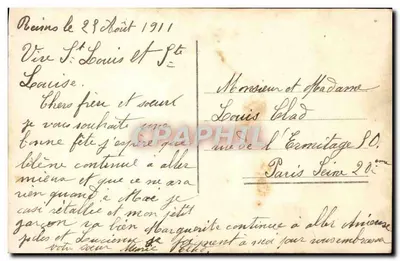 Reims le 23 Août 1911
Vive St Louis et Ste
Louise.
Chers frère et soeur
je vous souhaite une
bonne fête j'espère que
continue à aller
mieux et que ce ne sera
rien quand à Moi je
suis rétablie et mon petit
garçon va bien Marguerite continue à aller
et Lucienne se joignent à moi pour vous embrasser
votre soeur Marie
Monsieur et Madame
Louis Clad
rue de l'Ermitage 80
Paris Seine 20ème
CPArama.com